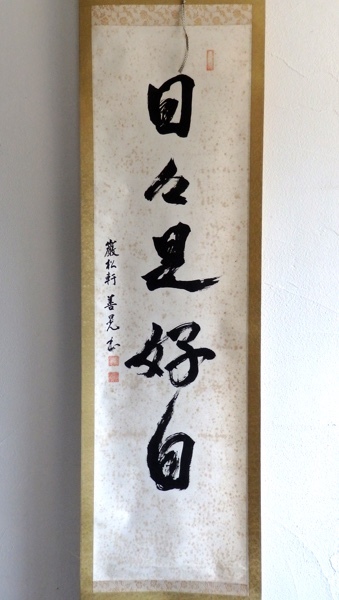 日々是好日
巖松軒 善晃 書